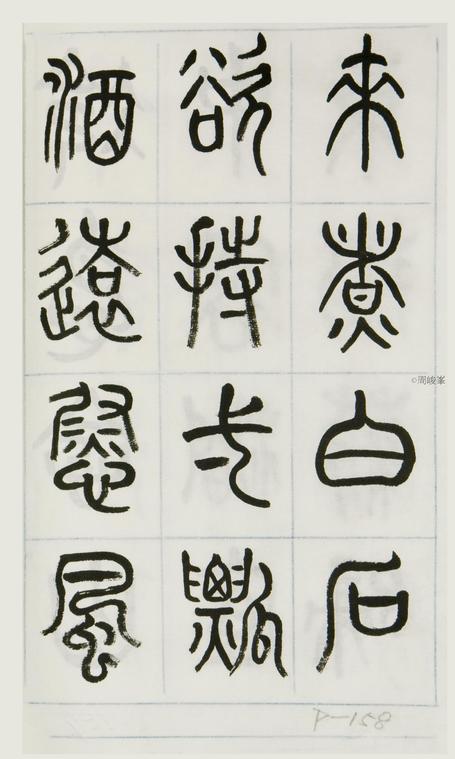 來煮白石
欲持弌瓢
酒遠慰風
©周峻峯
P-158